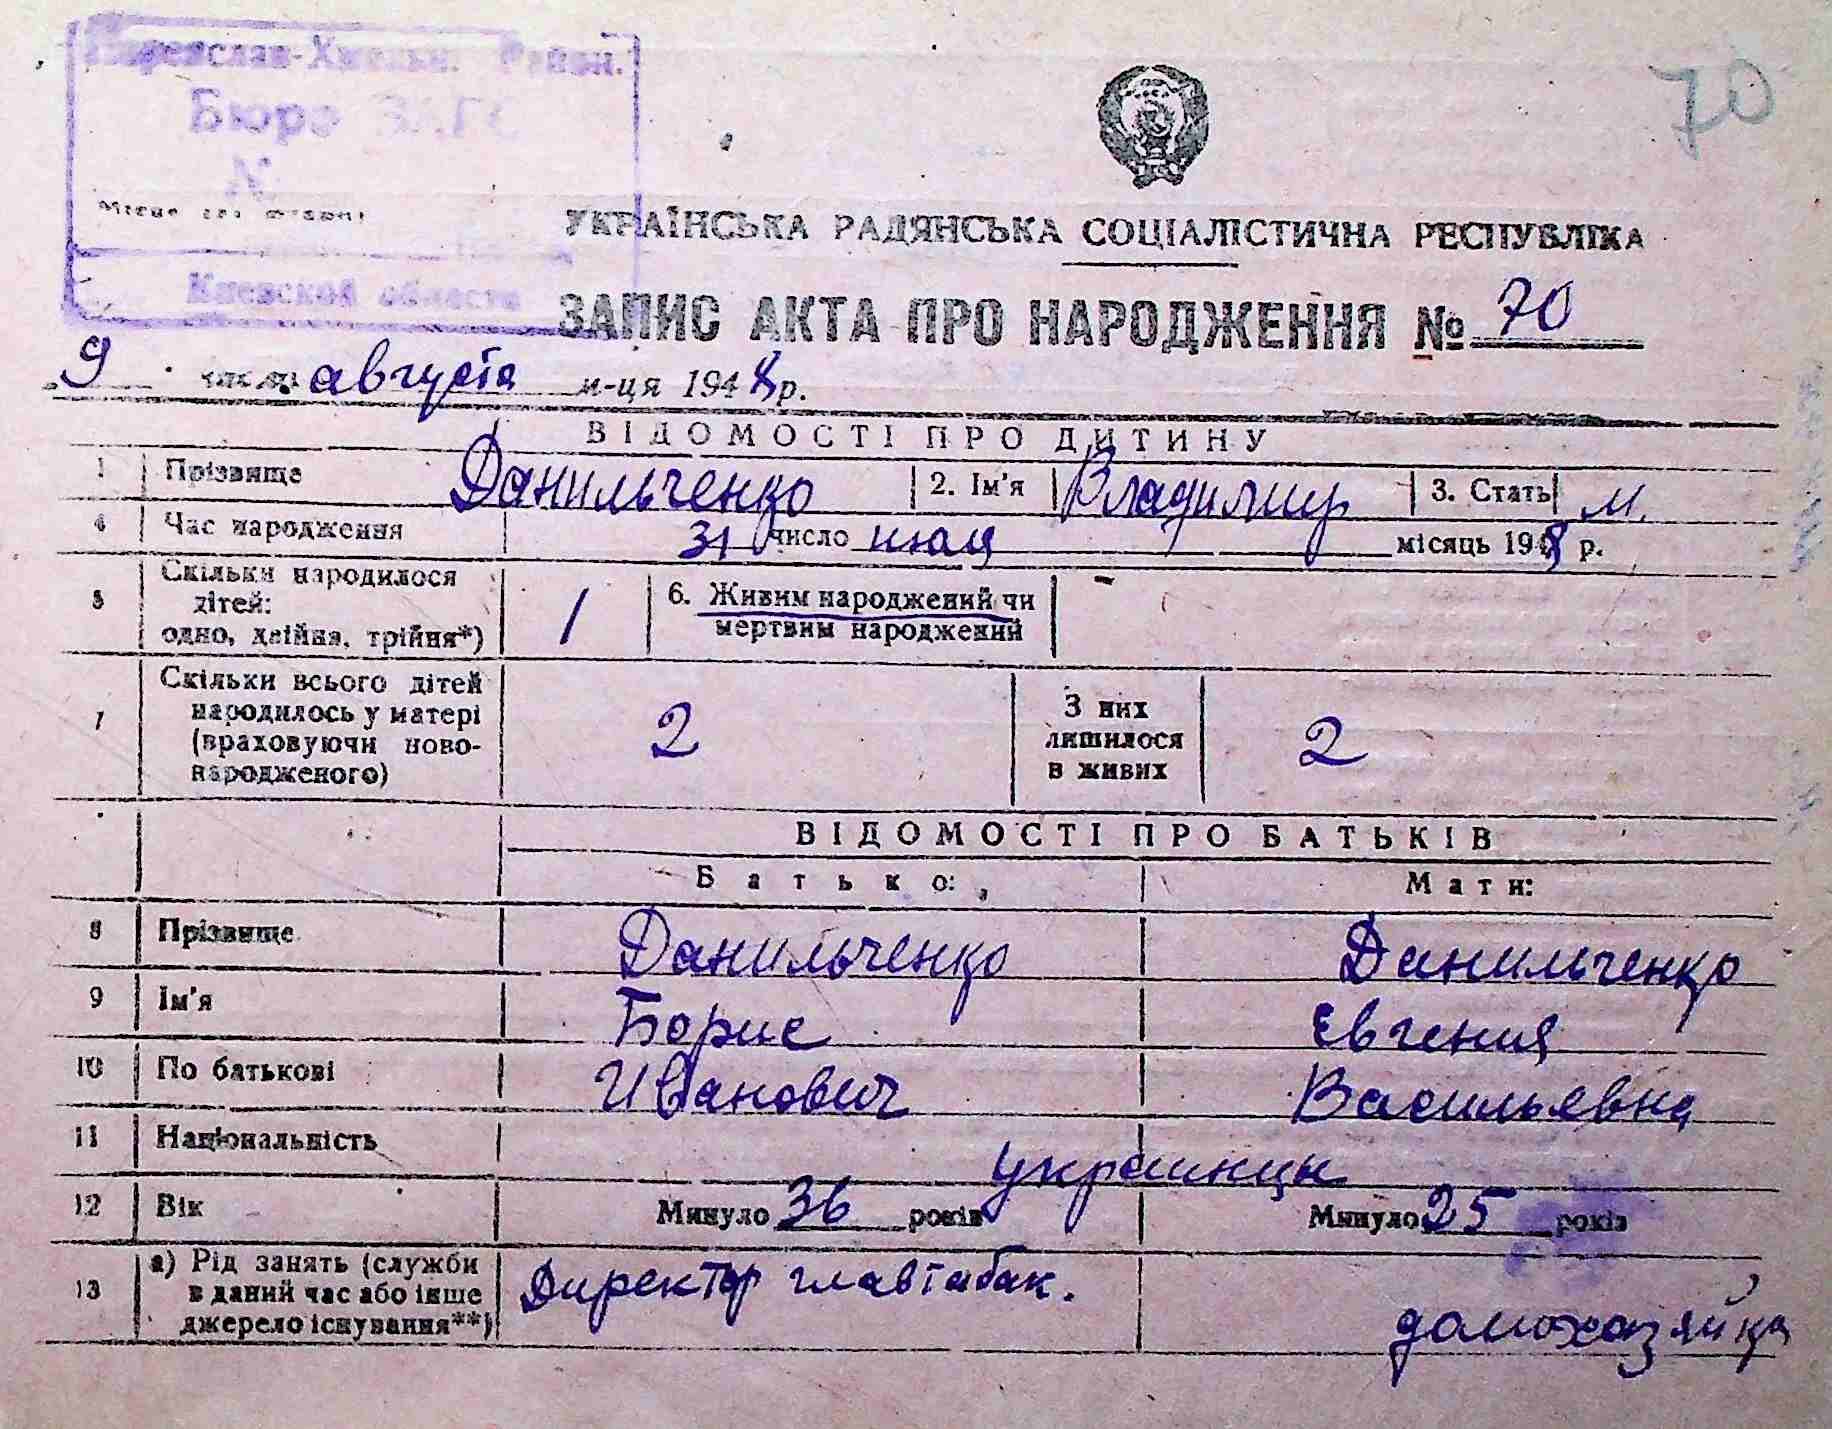 70
Переяслав-Хмельн. Район.
Бюро ЗАГС
N
Киевской области
УКРАЇНСЬКА РАДЯНСЬКА СОЦІАЛІСТИЧНА РЕСПУБЛІКА
ЗАПИС АКТА ПРО НАРОДЖЕННЯ № 70
9 числа августа м-ця 1948 р.
ВІДОМОСТІ ПРО ДИТИНУ
1 Прізвище Данильченко 2. Ім'я Владимир 3. Стать м.
4 Час народження 31 число июля місяць 1948 р.
5 Скільки народилося дітей: одно, двійня, трійня*) 1 6. Живим народжений чи мертвим народжений
7 Скільки всього дітей народилось у матері (враховуючи новонародженого) 2 З них лишилося в живих 2
ВІДОМОСТІ ПРО БАТЬКІВ
Батько: Мати:
8 Прізвище Данильченко Данильченко
9 Ім'я Борис Евгения
10 По батькові Иванович Васильевна
11 Національність украинцы
12 Вік Минуло 36 років Минуло 25 років
13 а) Рід занять (служби в даний час або інше джерело існування**) Директор главтабак. домохазяйка